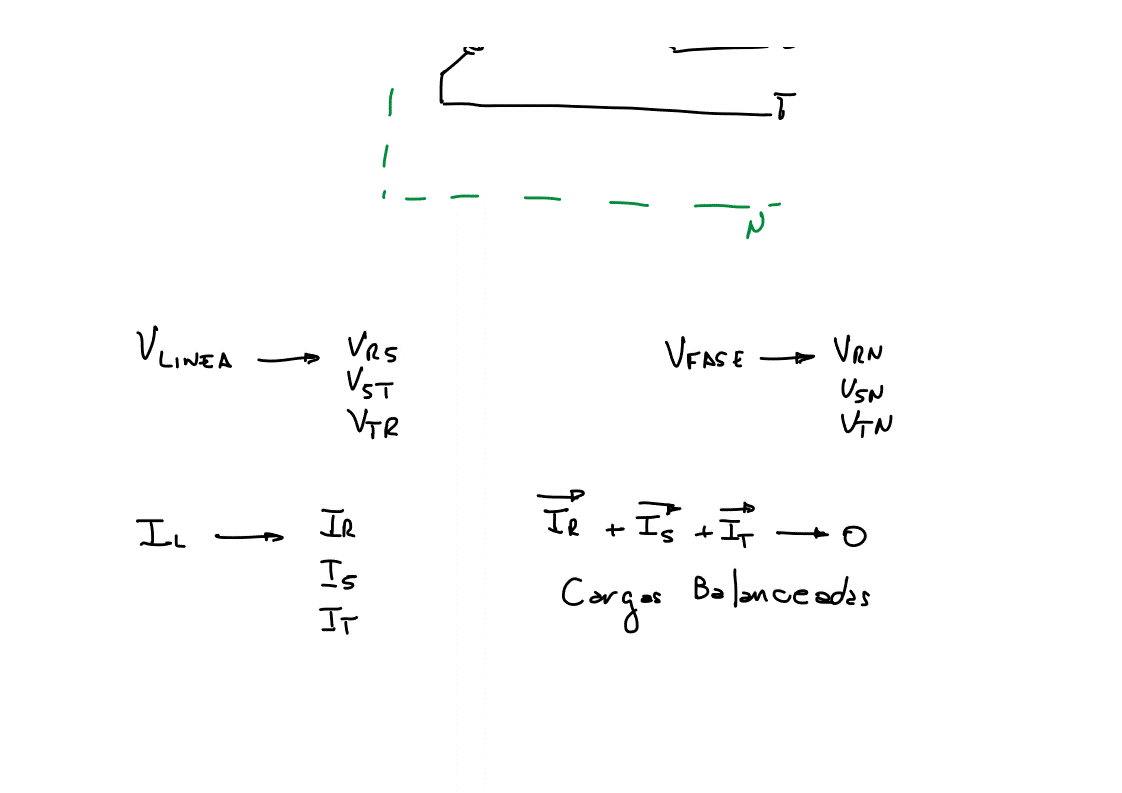 T
N
V LINEA → VRS
VST
VTR
V FASE → VRN
VSN
VTN
IL → IR
IS
IT
IR + IS + IT → 0
Cargas Balanceadas